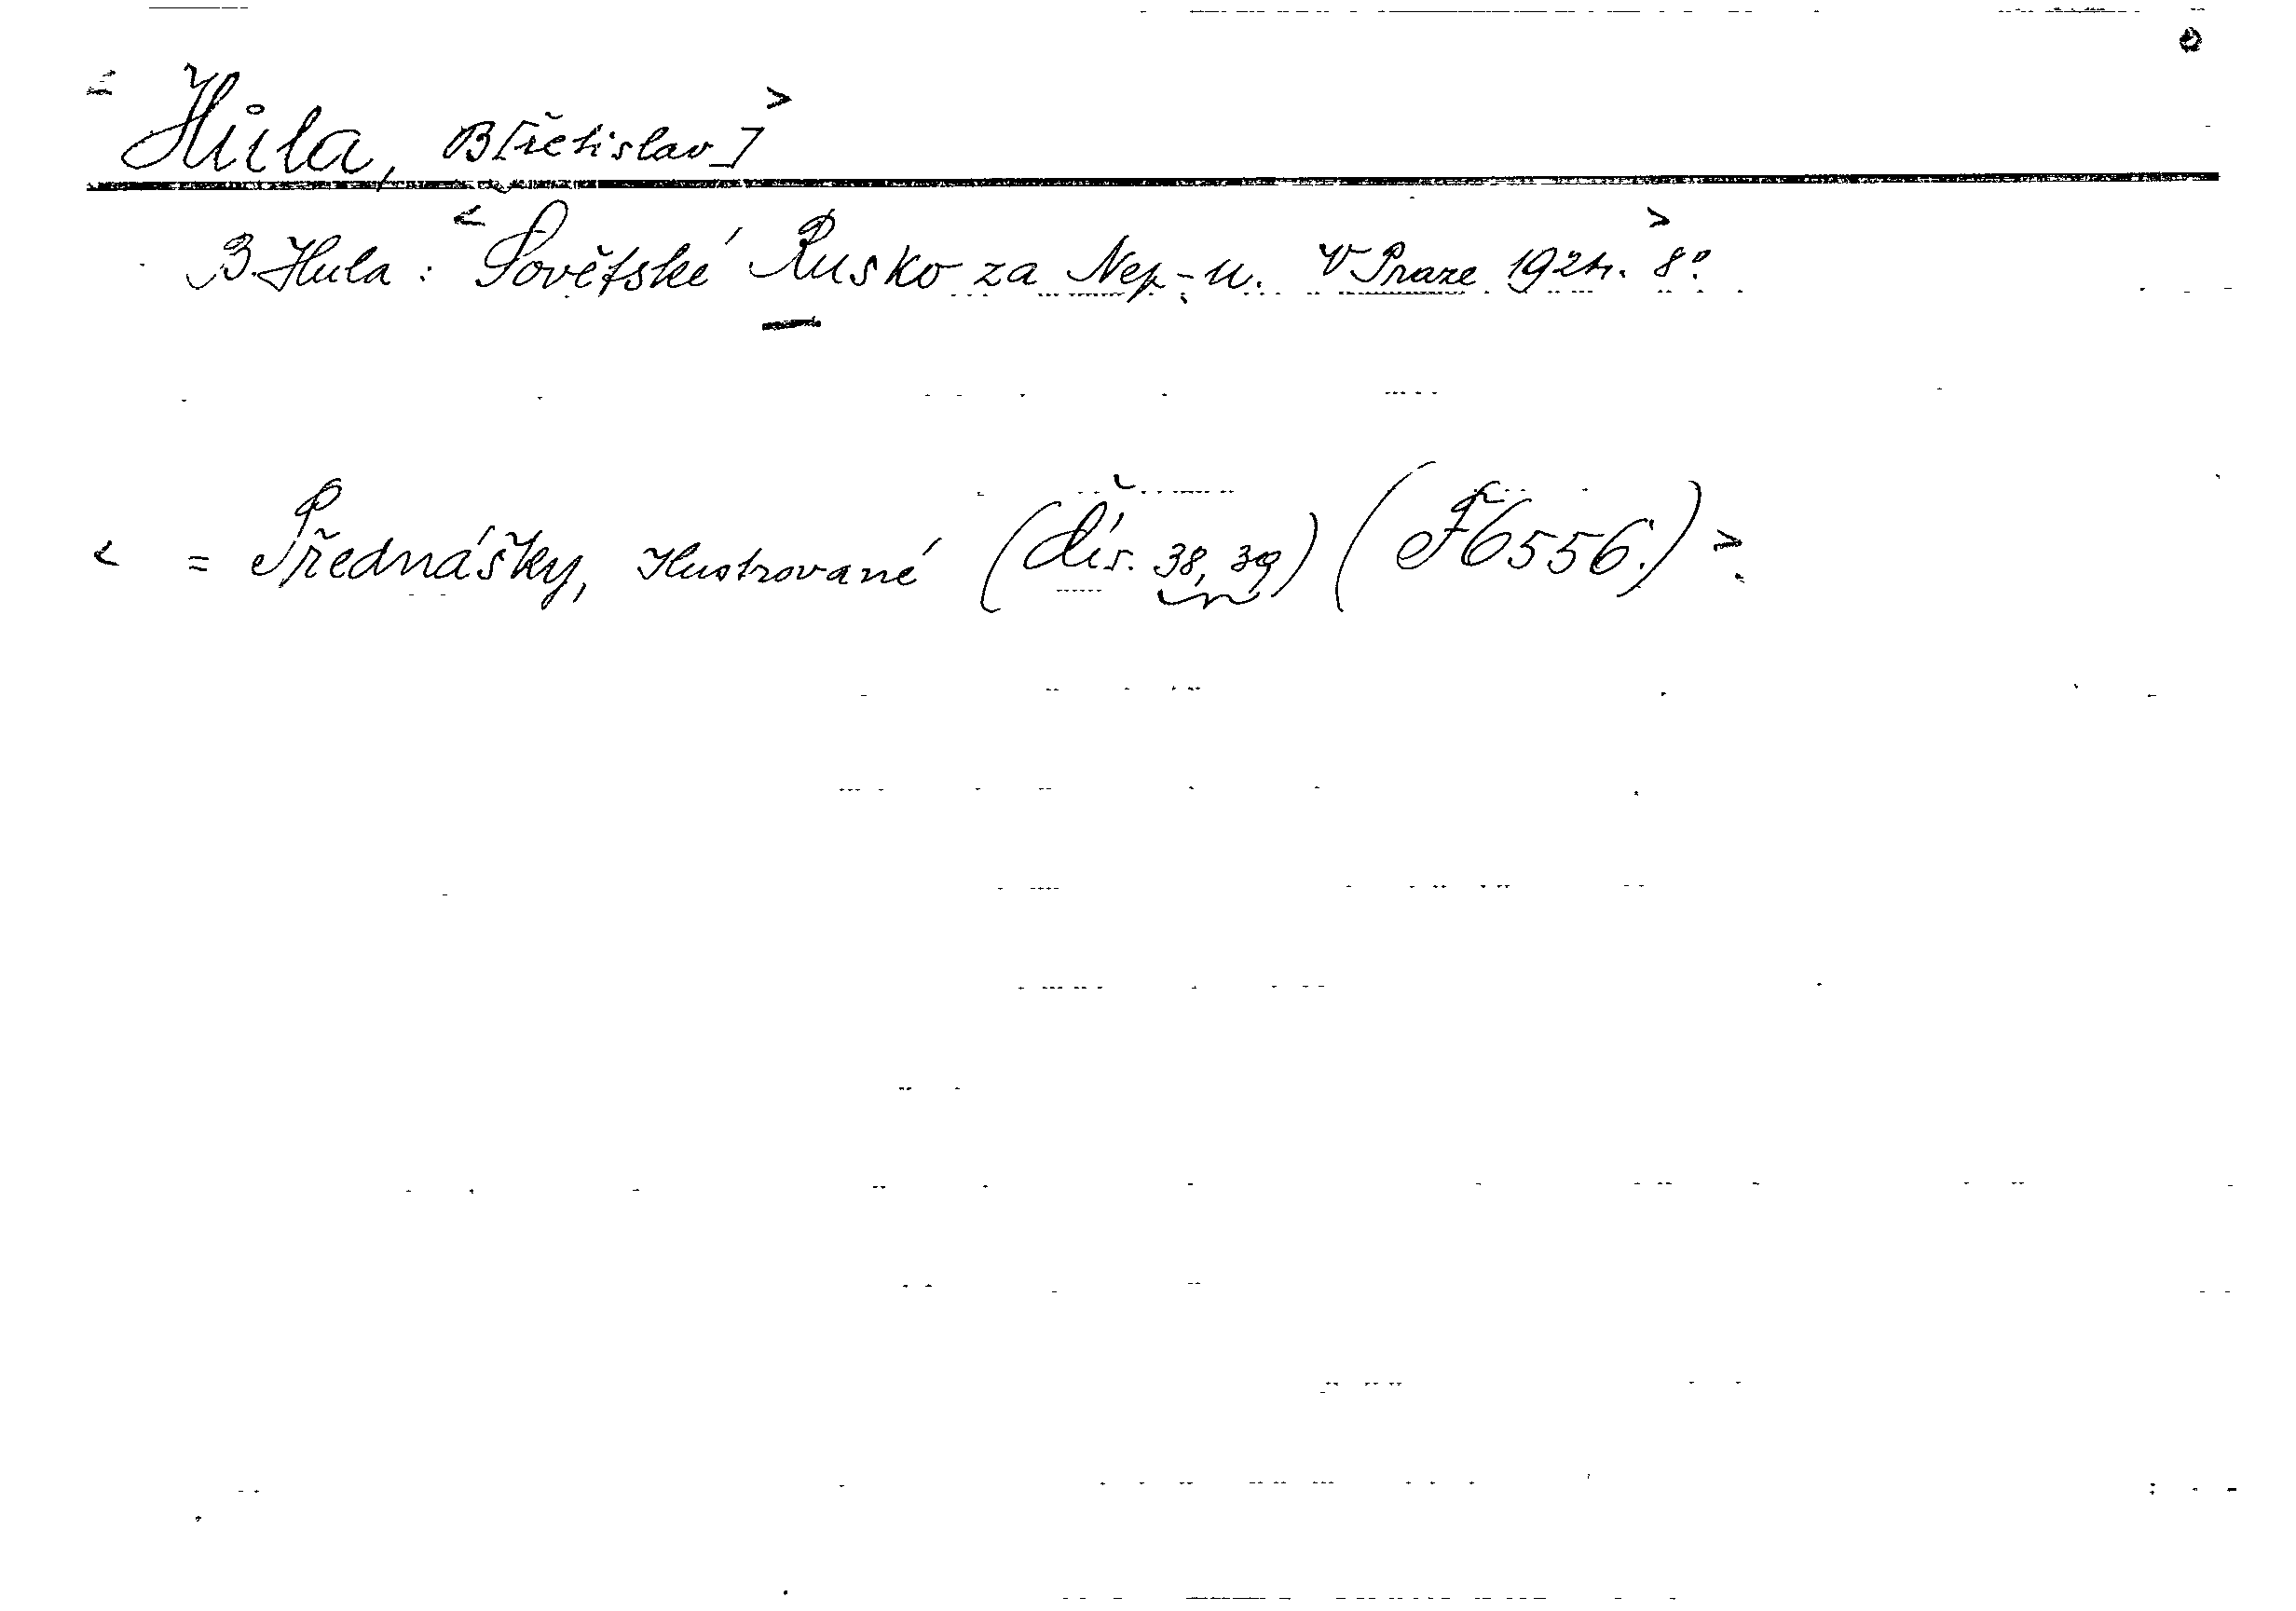 < Hůla, B[řetislav] >
B. Hula : < Sovětské Rusko za Nep-u. V Praze 1924. > 8º.
< = Přednášky, Ilustrované (čís. 38, 39) (F 6556.) >